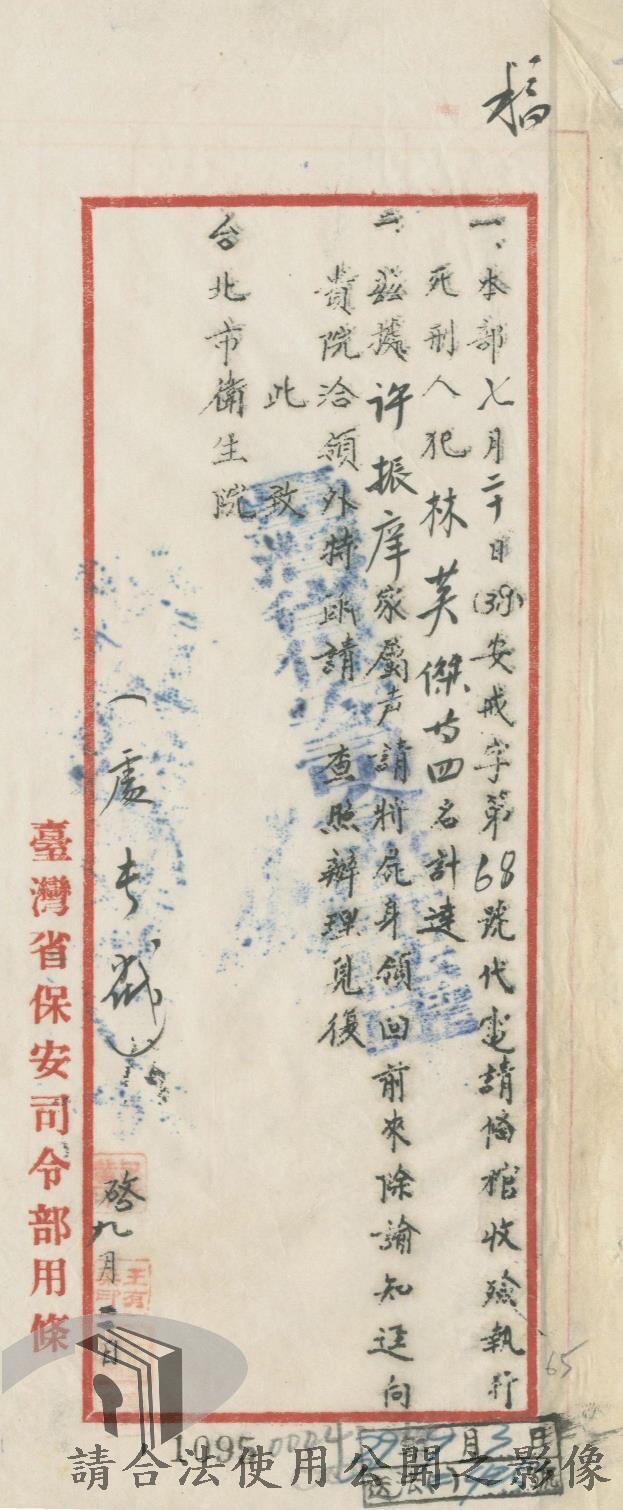 稿
一、本部七月二十日(39)安戒字第68號代電請備棺收殮執行
死刑人犯林英傑等四名計達
二、茲據许振庠家屬声請將屍身領回前來除諭知逕向
貴院洽領外特函請　查照辦理見復
此致
台北市衛生院
一處
啓九月三日
臺灣省保安司令部用條
65
1095
請合法使用公開之影像